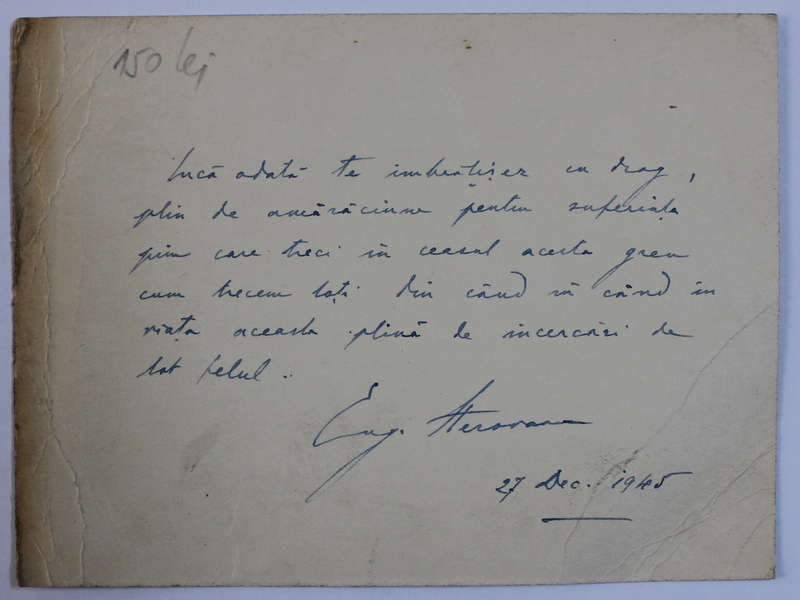 150 lei
Încă odată te îmbrățișez cu drag,
plin de amărăciune pentru suferința
prin care treci în ceasul acesta greu
cum trecem toți din când în când în
viața aceasta plină de încercări de
tot felul..
Eug. Herovanu
27 Dec. 1945